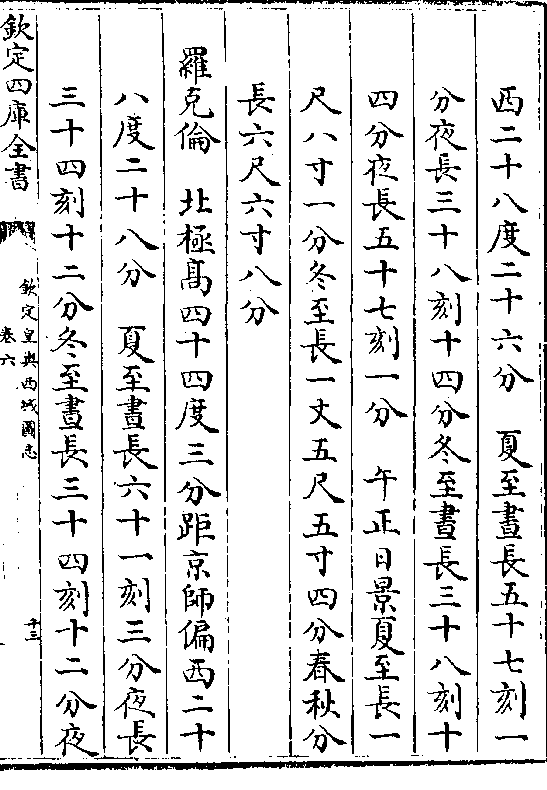 西二十八度二十六分　夏至晝長五十七刻一
分夜長三十八刻十四分冬至晝長三十八刻十
四分夜長五十七刻一分　午正日景夏至長一
尺八寸一分冬至長一丈五尺五寸四分春秋分
長六尺六寸八分
羅克倫　北極髙四十四度三分距京師偏西二十
八度二十八分　夏至晝長六十一刻三分夜長
三十四刻十二分冬至晝長三十四刻十二分夜
欽定四庫全書
欽定皇輿西域圖志
卷六
十三